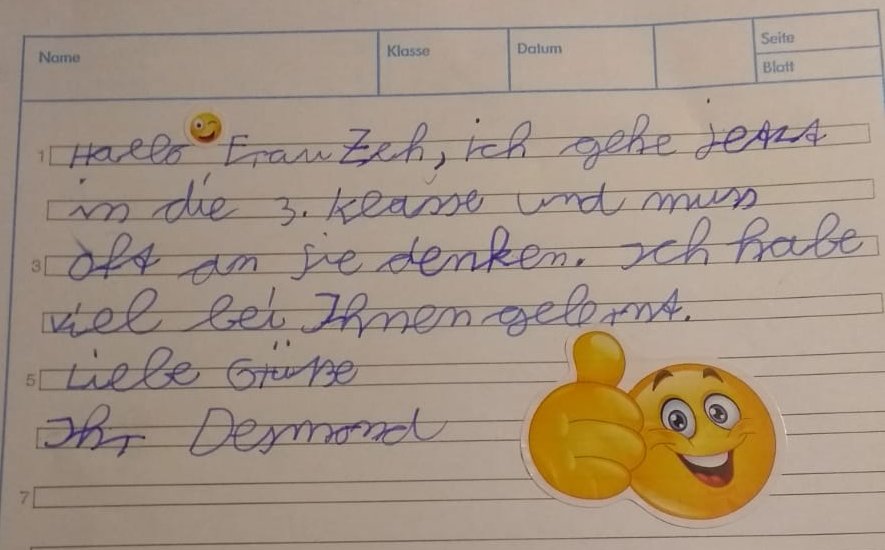 Name Klasse Datum Seite
Blatt
1 Hallo Frau Zeh, ich gehe jetzt
in die 3. Klasse und muss
3 oft an sie denken. Ich habe
viel bei Ihnen gelernt.
5 Liebe Grüße
Ihr Desmond
7